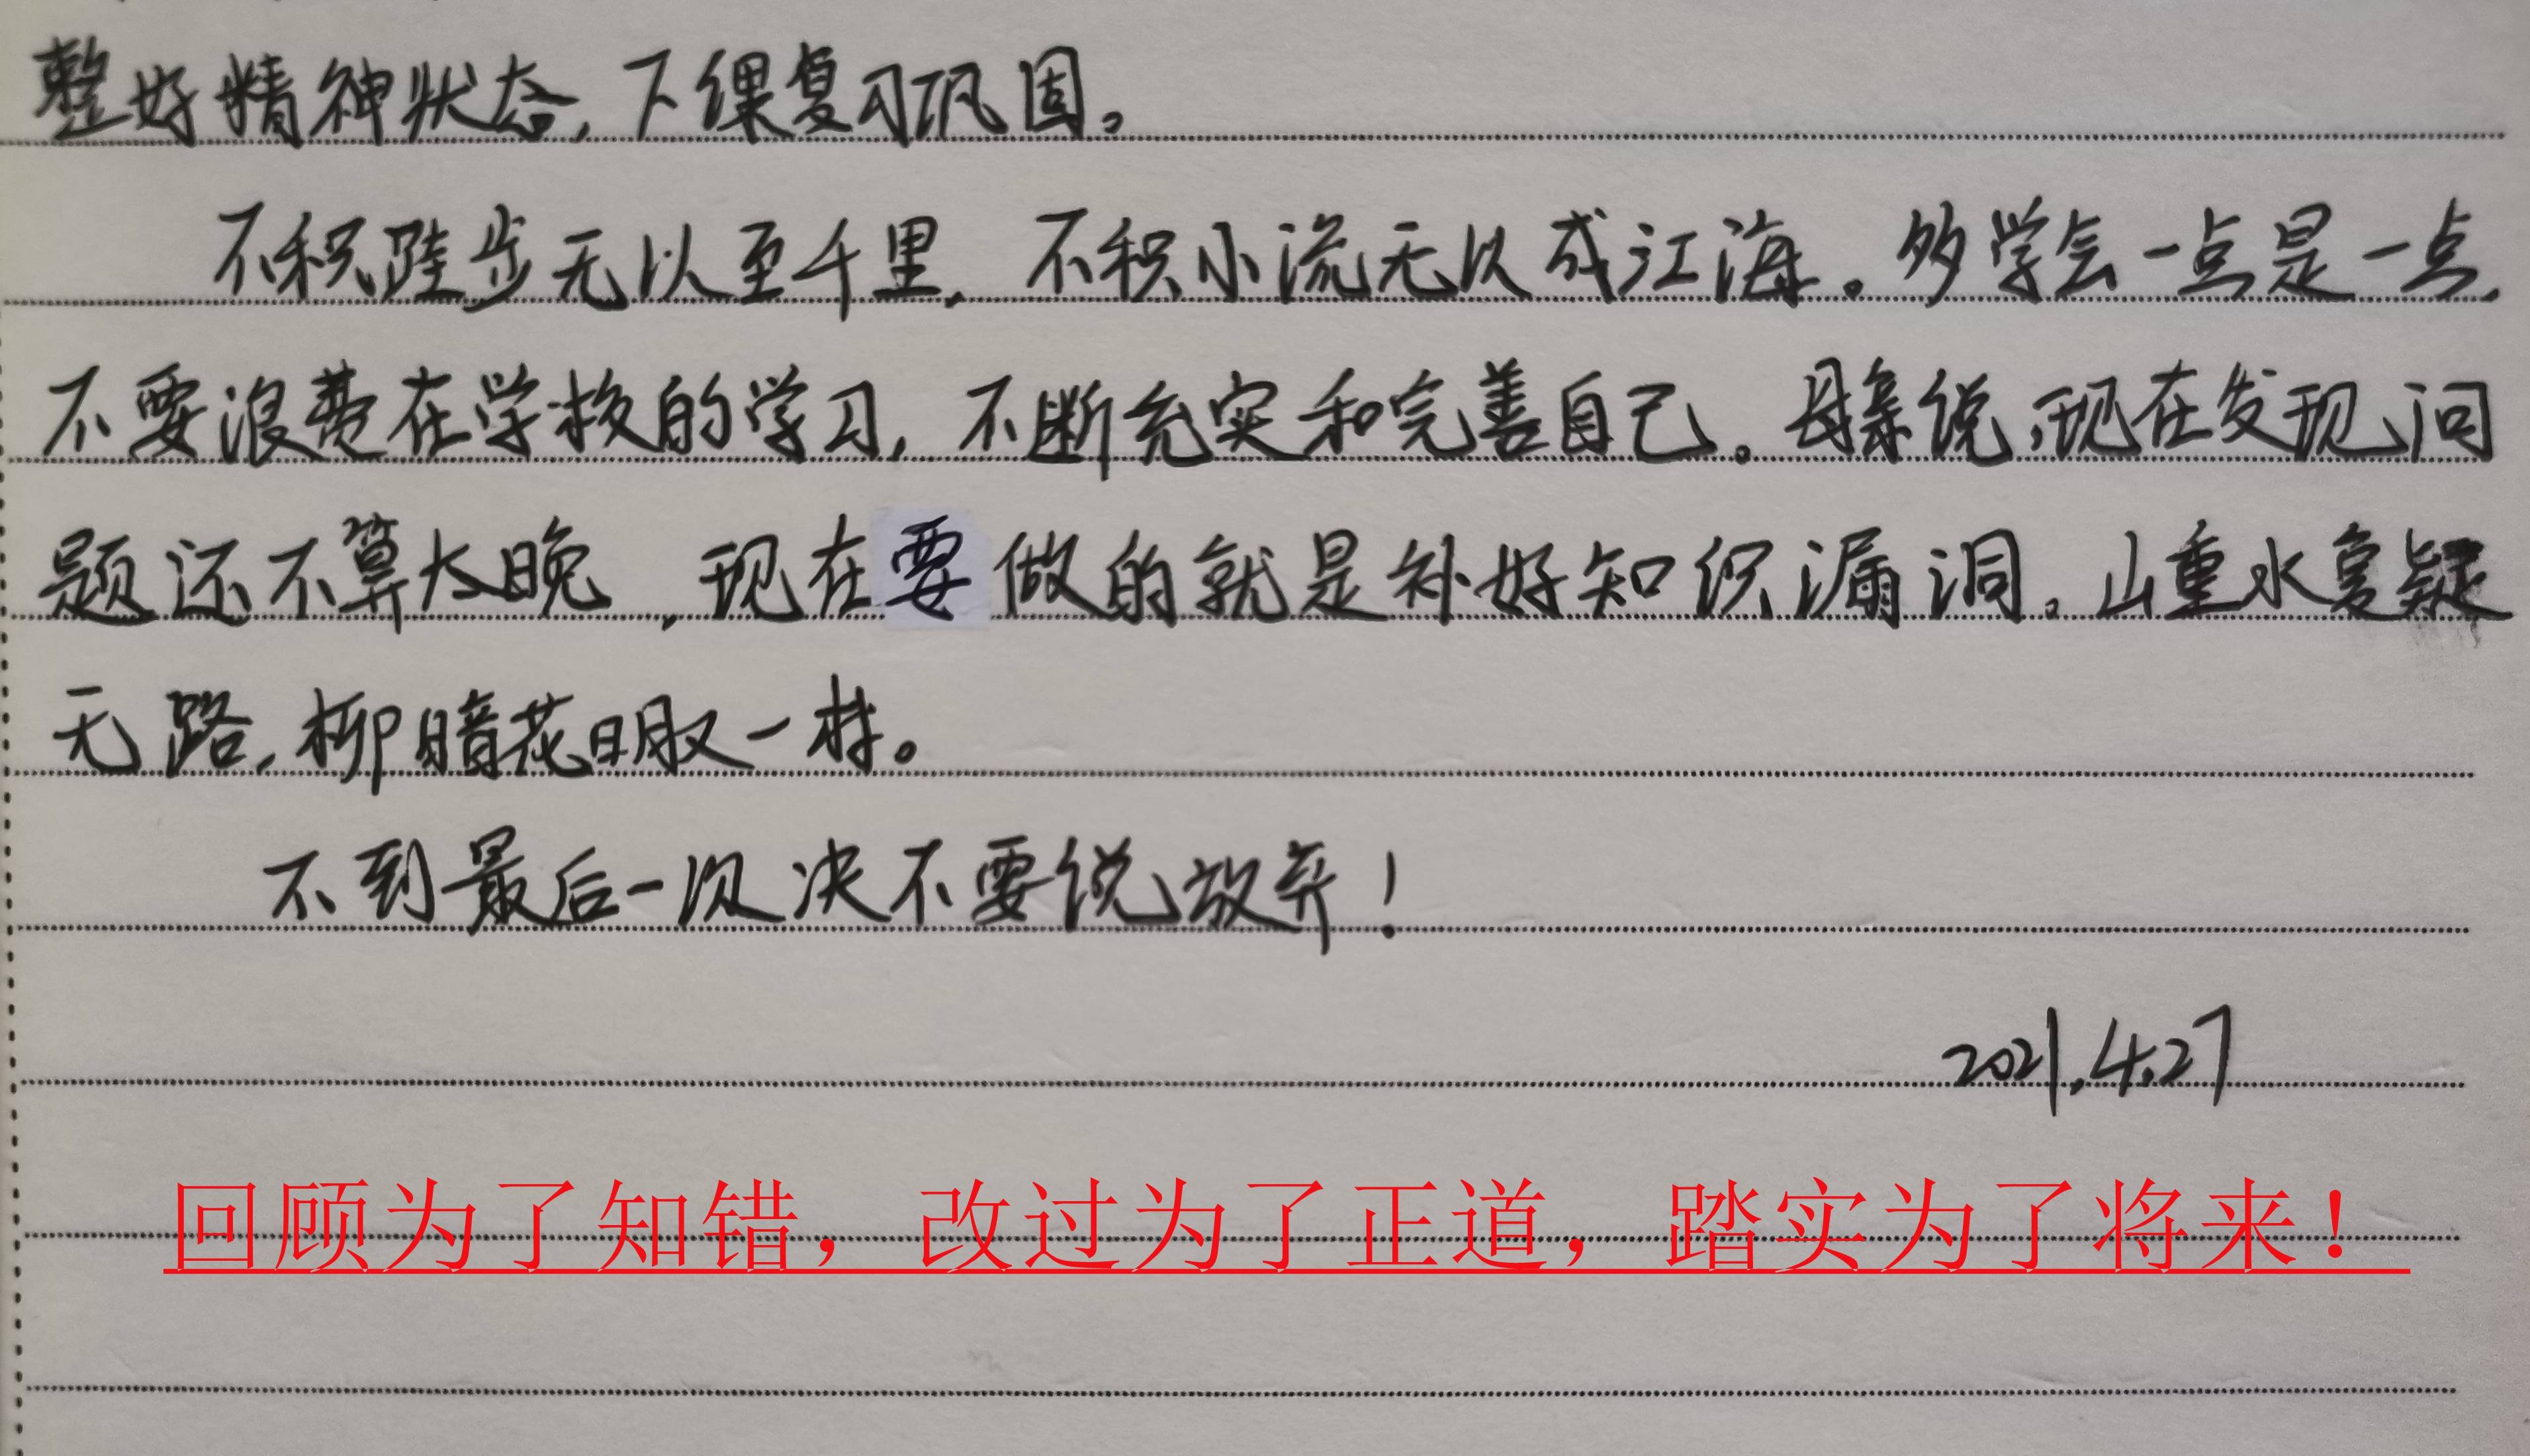 整好精神状态,下课复习巩固。
不积跬步无以至千里,不积小流无以成江海。多学会一点是一点,
不要浪费在学校的学习,不断充实和完善自己。母亲说,现在发现问
题还不算太晚,现在要做的就是补好知识漏洞。山重水复疑
无路,柳暗花明又一村。
不到最后一次决不要说放弃!
2021.4.27
回顾为了知错，改过为了正道，踏实为了将来！